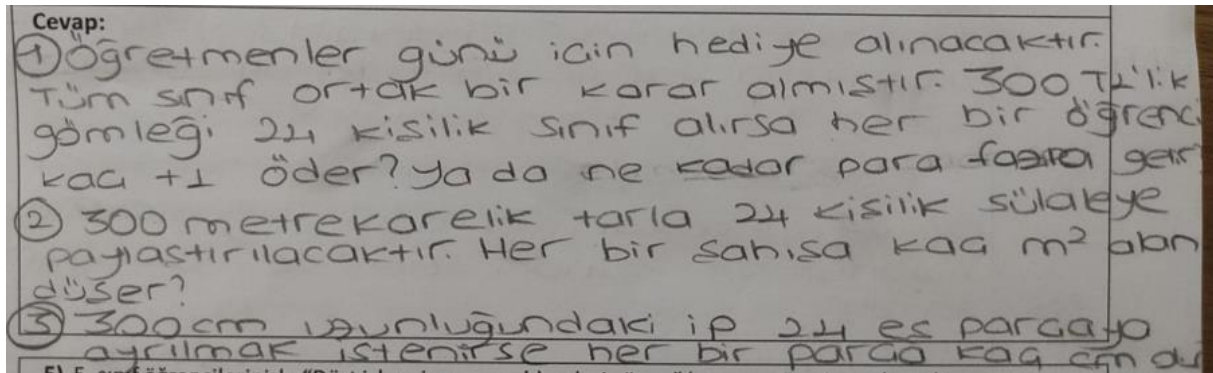 Cevap:
① Öğretmenler günü icin hediye alınacaktır.
Tüm sınıf ortak bir karar almıstır. 300 TL'lik
gömleği 24 kisilik sınıf alırsa her bir öğrenci
kac tl öder? Ya da ne kadar para
② 300 metrekarelik tarla 24 kisilik sülaleye
paylastırılacaktır. Her bir sahısa kac m² alan
düser?
③ 300 cm uzunluğundaki ip 24 es parcaya
ayrılmak istenirse her bir parca kac cm